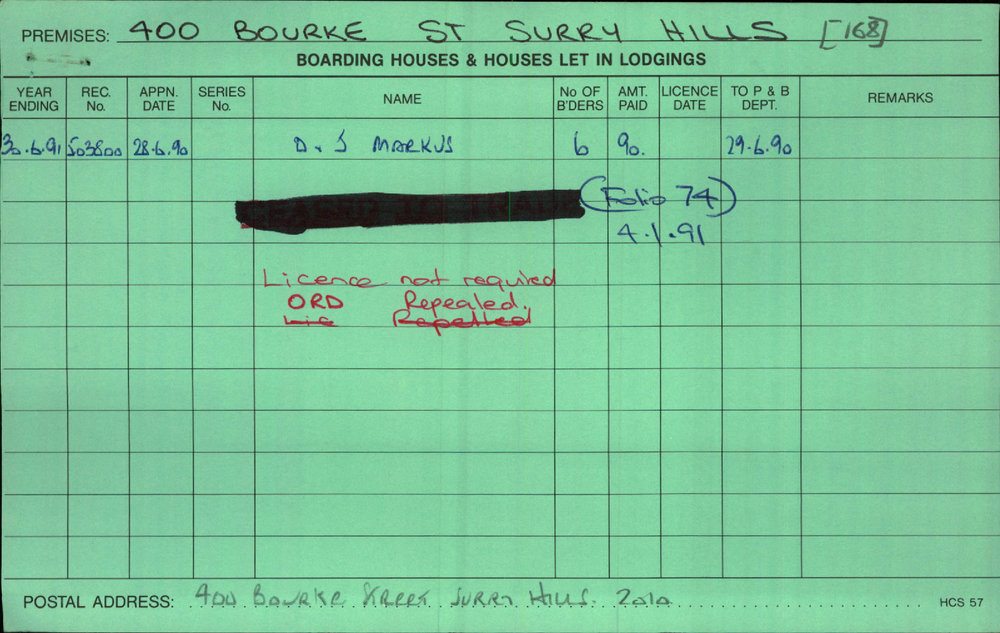 PREMISES: 400 BOURKE ST SURRY HILLS [168]
BOARDING HOUSES & HOUSES LET IN LODGINGS
YEAR ENDING REC. No. APPN. DATE SERIES No. NAME No OF B'DERS AMT. PAID LICENCE DATE TO P & B DEPT. REMARKS
30.6.91 503800 28.6.90 D. J MARKUS 6 90. 29.6.90
(Folio 74)
4.1.91
Licence not required
ORD Repealed.
Lic Repealled
POSTAL ADDRESS: 400 BOURKE STREET SURRY HILLS. 2010
HCS 57